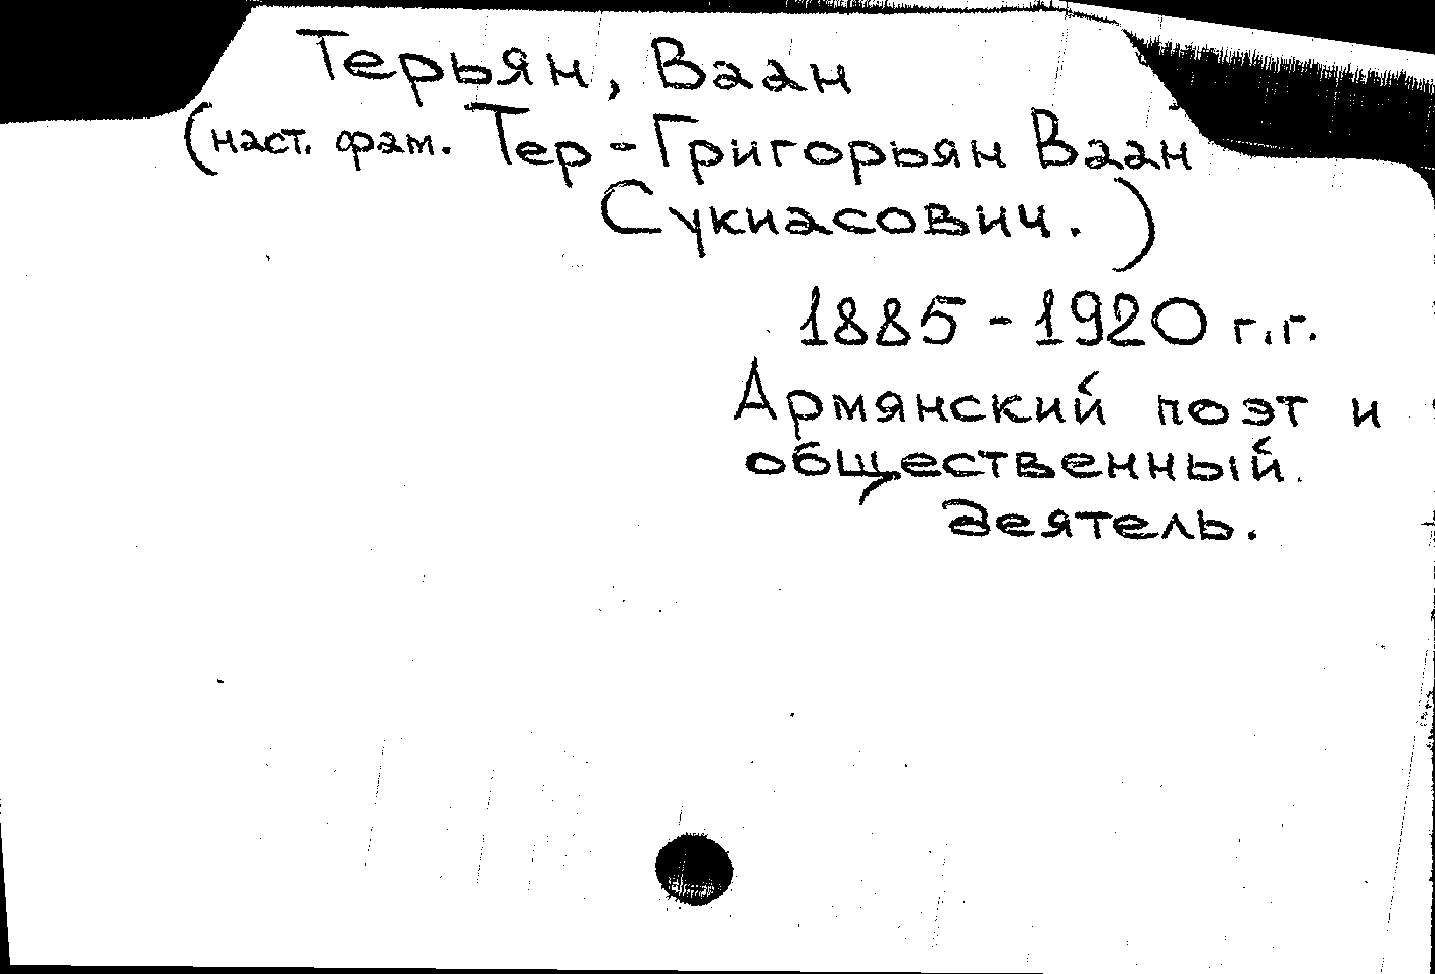 Терьян, Ваан
(наст. фам. Тер-Григорьян Ваан
Сукиасович.)
1885-1920 г.г.
Армянский поэт и
общественный
деятель.